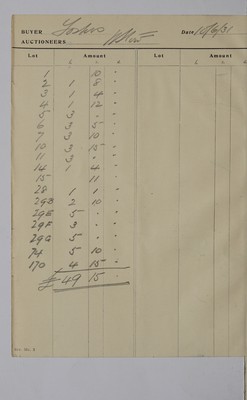 BUYER Foskers Date 10/6/31
AUCTIONEERS
Lot Amount Lot Amount
£ s. d. £ s. d.
1 10 "
2 1 8 "
3 1 4 "
4 1 12 "
5 3 " "
6 3 5 "
7 3 10 "
10 3 15 "
11 3 " "
14 1 4 "
15 11 "
28 1 1 "
29B 2 10 "
29E 5 " "
29F 3 " "
29G 5 " "
74 5 10 "
170 4 15 "
£ 49 15 "